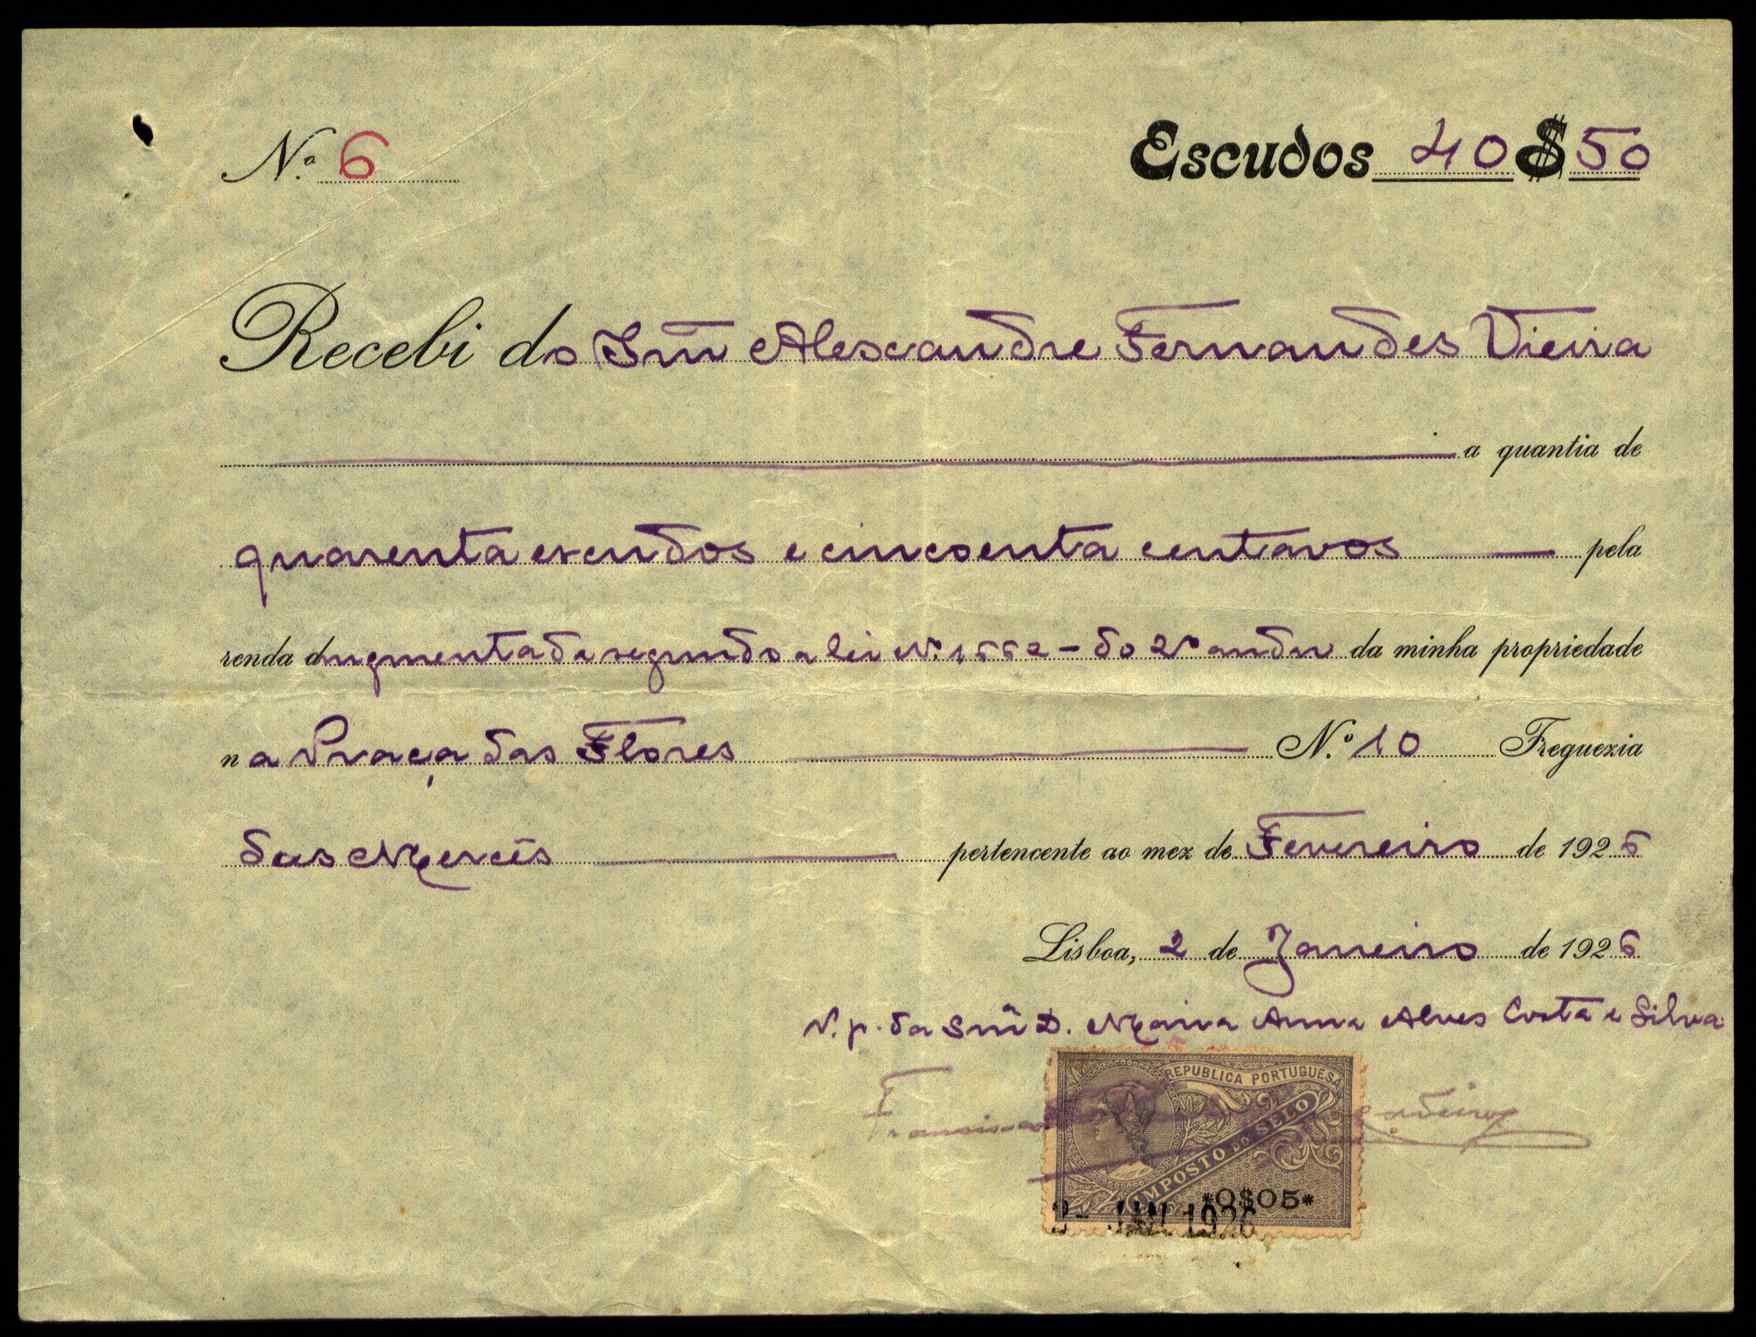 N.º 6
Escudos 40$50
Recebi do Snr Alexandre Fernandes Vieira
a quantia de
quarenta escudos e cincoenta centavos pela
renda augmentada segundo a lei Nº 1552 - do 2º andar da minha propriedade
na Praça das Flores N.º 10 Freguezia
das Mercês pertencente ao mez de Fevereiro de 1926
Lisboa, 2 de Janeiro de 1926
P. p. da Snrª D. Maria Anna Alves Costa e Silva
REPUBLICA PORTUGUESA
IMPOSTO DO SELO
*0$05*
2- JAN. 1926